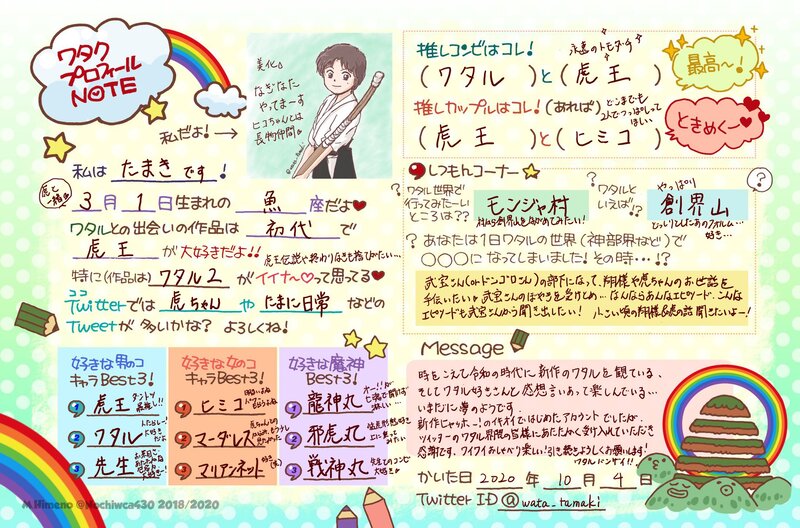 ワタク
プロフィール
NOTE
私だよ!→
美化☆
なぎなた
やってまーす
ヒコちゃんとは
長物仲間♪
推しコンビはコレ!
永遠のトモダチ
(ワタル)と(虎王)
最高〜!
推しカップルはコレ!(あれば)
どこまでも
2人でつっぱしって
ほしい
(虎王)と(ヒミコ)
ときめくー
私は たまき です!
3月1日生まれの 魚 座だよ♥
ワタルとの出会いの作品は 初代 で
虎王 が大好きだよ!!
特に(作品は) ワタル2 がイイナ〜♡って思ってる♥
ココ
Twitterでは 虎ちゃん や たまに日常 などの
Tweetが多いかな? よろしくね!
しつもんコーナー
ワタル世界で
行ってみたーい
ところは??
モンジャ村
村から創界山をながめてみたい!
ワタルと
いえば!?
やっぱり
創界山
どっしりとしたあのフォルム…
好き…
あなたは1日ワタルの世界(神部界など)で
〇〇〇になってしまいました!その時…!?
武宮さん(orドンゴロさん)の部下になって、翔龍や虎ちゃんのお世話を
手伝いたい。
好きな男のコ
キャラBest3!
1 虎王
2 ワタル
3 先生
好きな女のコ
キャラBest3!
1 ヒミコ
2 マーダレス
3 マリアンネット
好きな魔神
Best3!
1 龍神丸
2 邪虎丸
3 戦神丸
Message
時をこえて令和の時代に新作のワタルを観ている、
そしてワタル好きさんと感想言いあって楽しんでいる…
いまだに夢のようです。
新作じゃぁぁー!のイキオイではじめたアカウントでしたが、
ツイッターのワタル界隈の皆様にあたたかく受け入れていただき
感謝です。ワイワイおしゃべり楽しい!引き続きよろしくお願いします!
ワタルバンザイ!!
かいた日 2020年 10月 4日
Twitter ID @wata_tamaki
M Himeno @Mochiwca430 2018/2020